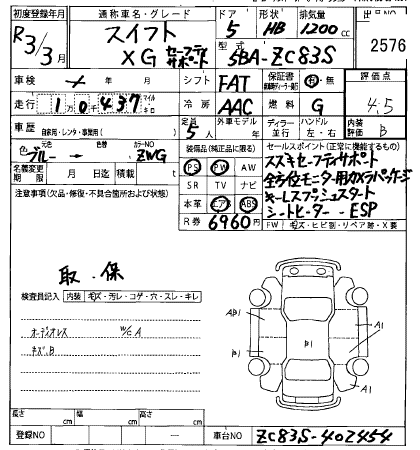 初度登録年月 通称車名・グレード ドア 形状 排気量 出品NO
R3/3月 スイフト 5 HB 1200cc 2576
XG セーフティサポート 型式 5BA-ZC83S
車検 年 月 シフト FAT 保証書 有・無 評価点
走行 1万0千437 マイル キロ 冷房 AAC 燃料 G 4.5
車歴 自家用・レンタ・事業用( ) 定員 5人 外車モデル 年 ディーラー 並行 ハンドル 左・右 内装評価 B
色 元色 ブルー → 替色 カラーNO ZWG 装備品(純正品に限る) セールスポイント(正常に機能するもの)
名義変更期限 月 日迄 積載 t PS PW AW スズキセーフティサポート
注意事項(欠品・修復・不具合箇所および状態) SR TV ナビ 全方位モニター用カメラパッケージ
本革 エアB ABS キーレスプッシュスタート
R券 6960円 シートヒーター ESP
FW モス・ヒビ割・リペア跡・X要
取・保
検査員記入 内装 モズ・汚レ・コゲ・穴・スレ・キレ
オーディオレス W/C A
キズ.B
AB1 B1 B1 A1 A1
長さ cm 幅 cm 高さ cm
登録NO 車台NO ZC83S-402454